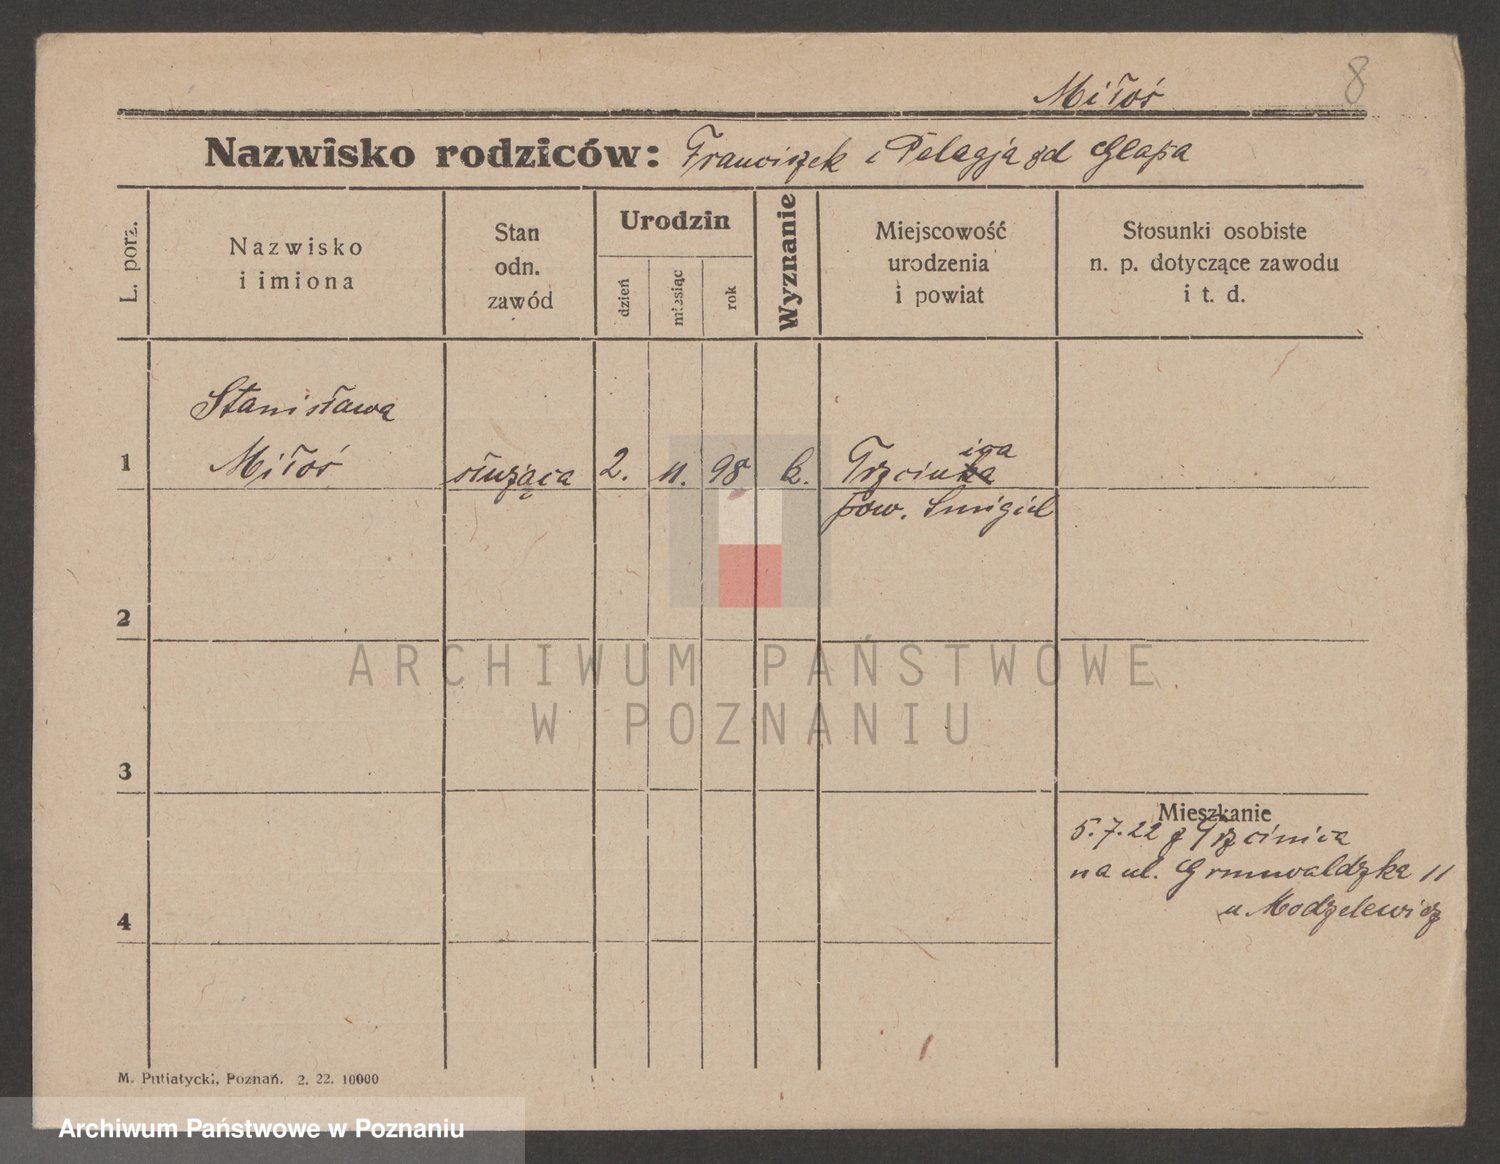 8
Miłoś
Nazwisko rodziców: Franciszek i Pelagja zd Glapa
L. porz.
Nazwisko
i imiona
Stan
odn.
zawód
Urodzin
dzień
miesiąc
rok
Wyznanie
Miejscowość
urodzenia
i powiat
Stosunki osobiste
n. p. dotyczące zawodu
i t. d.
Stanisława
1 Miłoś służąca 2. 11. 98 k. Trzcinica
pow. Śmigiel
2
ARCHIWUM PAŃSTWOWE
W POZNANIU
3
Mieszkanie
5.7.22 z Trzcinica
na ul. Grunwaldzka 11
u Modzelewicz
4
M. Putiatycki, Poznań. 2. 22. 10000
Archiwum Państwowe w Poznaniu